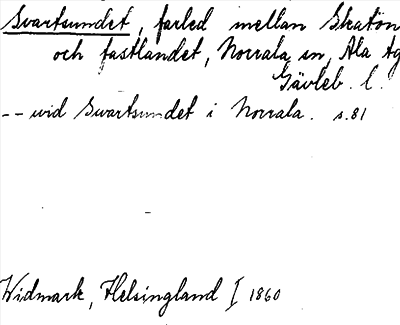 Svartsundet, farled mellan Skatön
och fastlandet, Norrala sn, Ala tg
Gävleb. l.
-- wid Swartsundet i Norrala. s. 81
Widmark, Helsingland I 1860